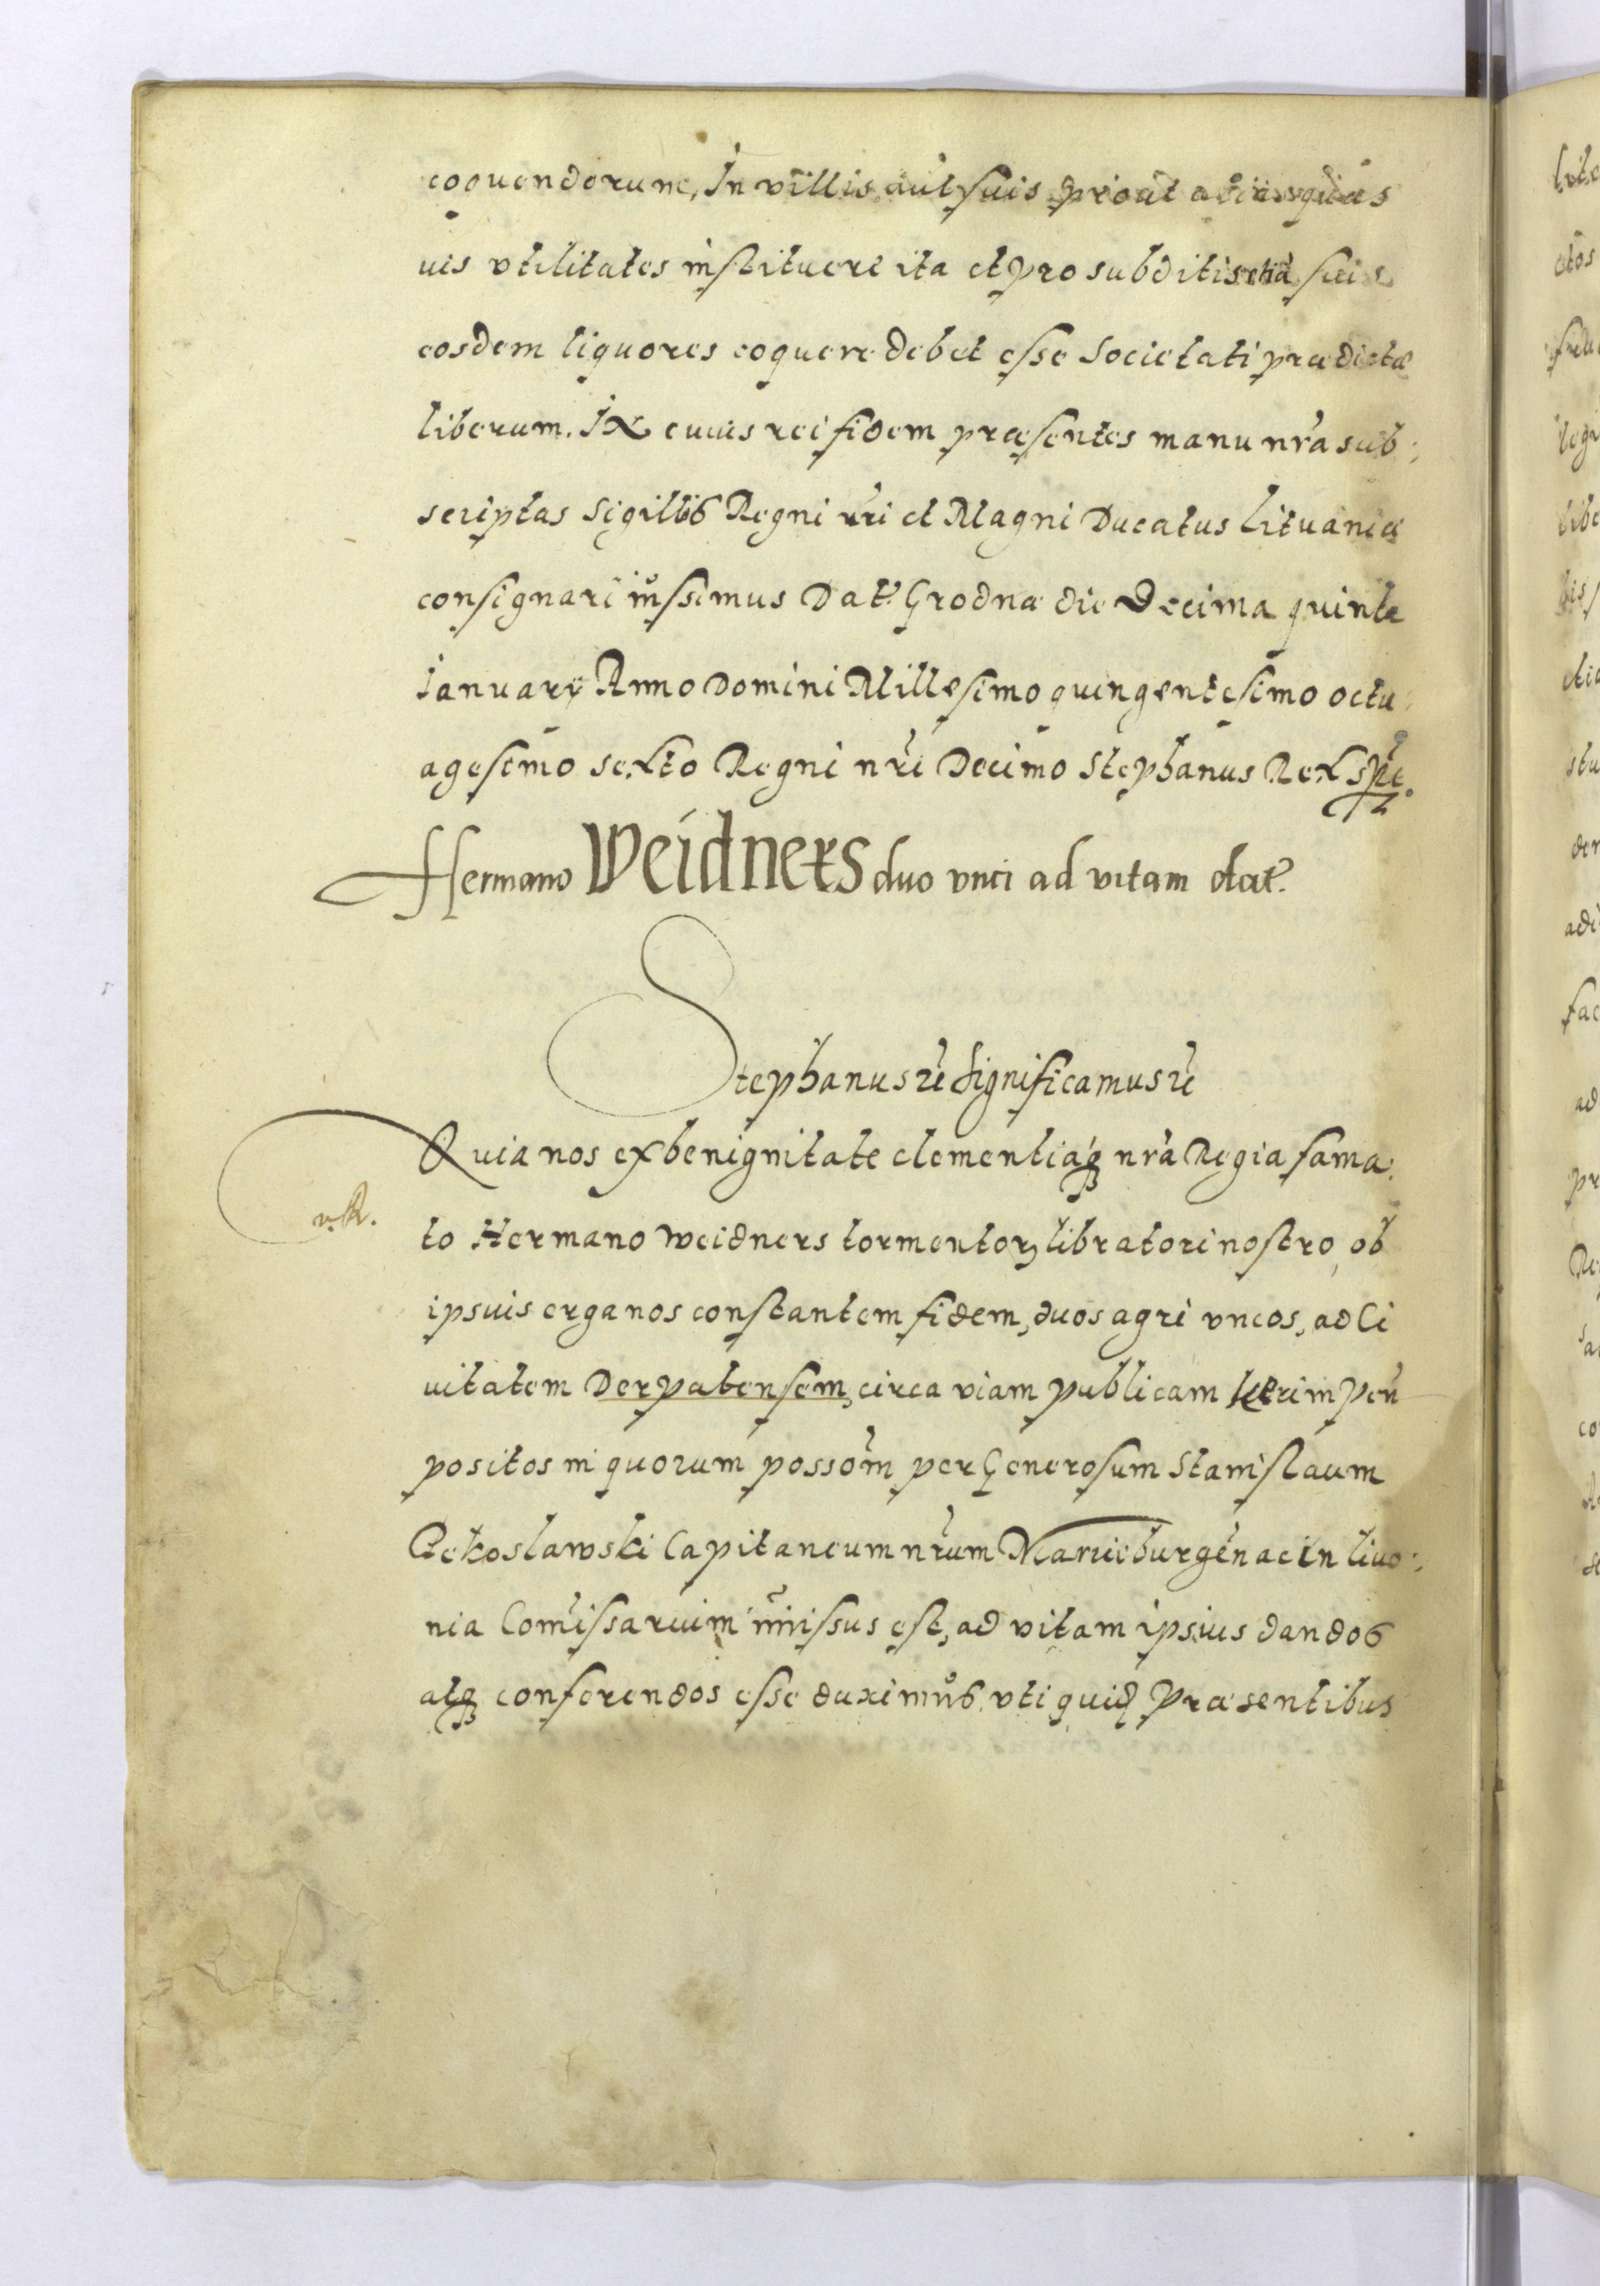 coquendorum, In villis aut suis prout
uis vtilitates instituere ita et pro subditis etiā suis
eosdem liquores coquere debet esse Societati prædictæ
liberum. IN cuius rei fidem præsentes manu nrā sub:
scriptas Sigillis Regni nri et Magni Ducatus Lituaniæ
consignari iussimus Dat. Grodnæ die Decima quinta
Ianuarÿ Anno Domini Millesimo quingentesimo octu:
agesimo sexto Regni nri Decimo Stephanus Rex spt.
Hermano Weidners duo vnci ad vitam dat.
Stephanus rē Significamus rē
Quia nos ex benignitate clementiaq; nrā Regia fama:
v.R.
to Hermano Weidners tormentorz libratori nostro, ob
ipsuis erga nos constantem fidem, duos agri vncos, ad Ci
uitatem Derpatensem, circa viam publicam
positos in quorum possom per Generosum Stanislaum
Capitaneum nrum Marieburgen ac in Liuo:
nia Comissarium missus est, ad vitam ipsius dandos
atq; conferendos esse duximus. vti quid præsentibus